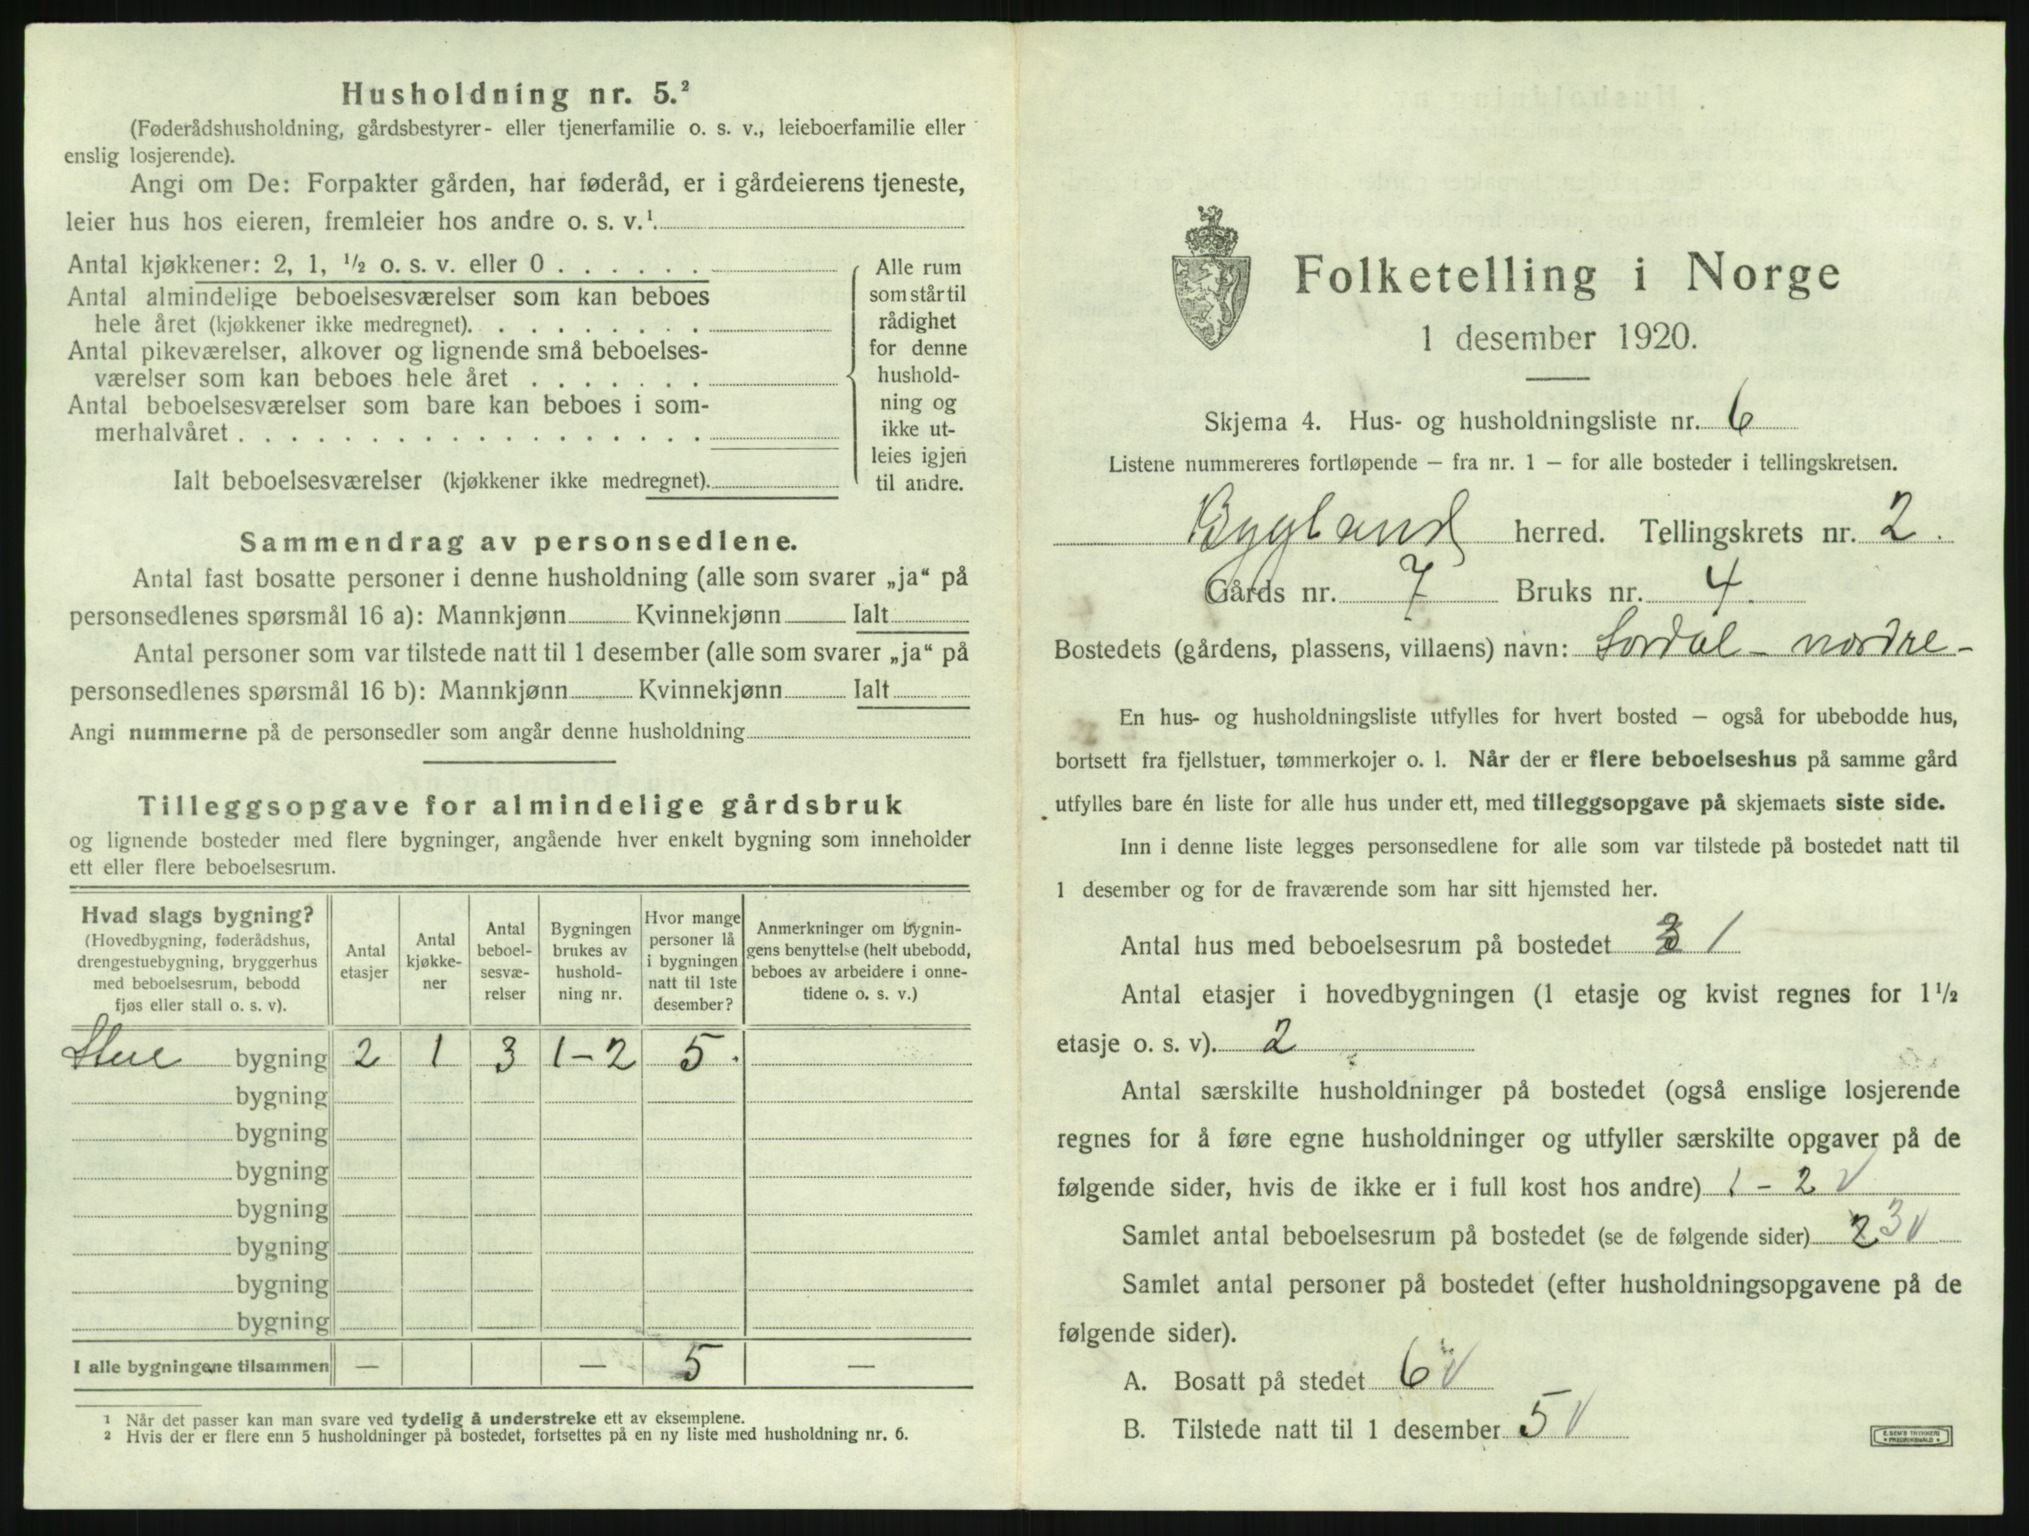 Husholdning nr. 5.²
(Føderådshusholdning, gårdsbestyrer- eller tjenerfamilie o. s. v., leieboerfamilie eller
enslig losjerende).
Angi om De: Forpakter gården, har føderåd, er i gårdeierens tjeneste,
leier hus hos eieren, fremleier hos andre o. s. v.¹
Antal kjøkkener: 2, 1, ½ o. s. v. eller 0 . . . . . .
Antal almindelige beboelsesværelser som kan beboes
hele året (kjøkkener ikke medregnet). . . . . . . . .
Antal pikeværelser, alkover og lignende små beboelses-
værelser som kan beboes hele året . . . . . . .
Antal beboelsesværelser som bare kan beboes i som-
merhalvåret . . . . . . . . . . . . . . . . . .
Ialt beboelsesværelser (kjøkkener ikke medregnet).
Alle rum
som står til
rådighet
for denne
hushold-
ning og
ikke ut-
leies igjen
til andre.
Sammendrag av personsedlene.
Antal fast bosatte personer i denne husholdning (alle som svarer „ja“ på
personsedlenes spørsmål 16 a): Mannkjønn Kvinnekjønn Ialt
Antal personer som var tilstede natt til 1 desember (alle som svarer „ja“ på
personsedlenes spørsmål 16 b): Mannkjønn Kvinnekjønn Ialt
Angi nummerne på de personsedler som angår denne husholdning
Tilleggsopgave for almindelige gårdsbruk
og lignende bosteder med flere bygninger, angående hver enkelt bygning som inneholder
ett eller flere beboelsesrum.
Hvad slags bygning?
(Hovedbygning, føderådshus,
drengestuebygning, bryggerhus
med beboelsesrum, bebodd
fjøs eller stall o. s. v).
Antal
etasjer
Antal
kjøkke-
ner
Antal
beboel-
sesvæ-
relser
Bygningen
brukes av
hushold-
ning nr.
Hvor mange
personer lå
i bygningen
natt til 1ste
desember?
Anmerkninger om bygnin-
gens benyttelse (helt ubebodd,
beboes av arbeidere i onne-
tidene o. s. v.)
Stue bygning 2 1 3 1-2 5.
bygning
bygning
bygning
bygning
bygning
bygning
bygning
I alle bygningene tilsammen — — 5 —
¹ Når det passer kan man svare ved tydelig å understreke ett av eksemplene.
² Hvis der er flere enn 5 husholdninger på bostedet, fortsettes på en ny liste med husholdning nr. 6.
Folketelling i Norge
1 desember 1920.
Skjema 4. Hus- og husholdningsliste nr. 6
Listene nummereres fortløpende – fra nr. 1 – for alle bosteder i tellingskretsen.
Bygland herred. Tellingskrets nr. 2.
Gårds nr. 7 Bruks nr. 4.
Bostedets (gårdens, plassens, villaens) navn: Sordal - nordre -
En hus- og husholdningsliste utfylles for hvert bosted – også for ubebodde hus,
bortsett fra fjellstuer, tømmerkojer o. l. Når der er flere beboelseshus på samme gård
utfylles bare én liste for alle hus under ett, med tilleggsopgave på skjemaets siste side.
Inn i denne liste legges personsedlene for alle som var tilstede på bostedet natt til
1 desember og for de fraværende som har sitt hjemsted her.
Antal hus med beboelsesrum på bostedet 3 1
Antal etasjer i hovedbygningen (1 etasje og kvist regnes for 1½
etasje o. s. v). 2
Antal særskilte husholdninger på bostedet (også enslige losjerende
regnes for å føre egne husholdninger og utfyller særskilte opgaver på de
følgende sider, hvis de ikke er i full kost hos andre) 1 - 2 √
Samlet antal beboelsesrum på bostedet (se de følgende sider) 2 3 √
Samlet antal personer på bostedet (efter husholdningsopgavene på de
følgende sider).
A. Bosatt på stedet 6 √
B. Tilstede natt til 1 desember 5 √
E. SEM'S TRYKKERI
FREDRIKSHALD